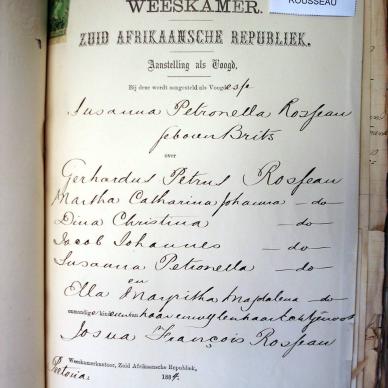 WEESKAMER.
ROUSSEAU
ZUID AFRIKAANSCHE REPUBLIEK.
Aanstelling als Voogd.
Bij deze wordt aangesteld als Voogdesse
Susanna Petronella Rosseau
geboren Brits
over
Gerhardus Petrus Rosseau
Martha Catharina Johanna — do —
Dina Christina — do —
Jacob Johannes — do —
Susanna Petronella — do —
en
Ella Margritha Magdalena — do
onmondige kinderen van haar en wijlen haar Echtgenoot
Josua François Rosseau
Weeskamerkantoor, Zuid Afrikaansche Republiek,
Pretoria 1884.